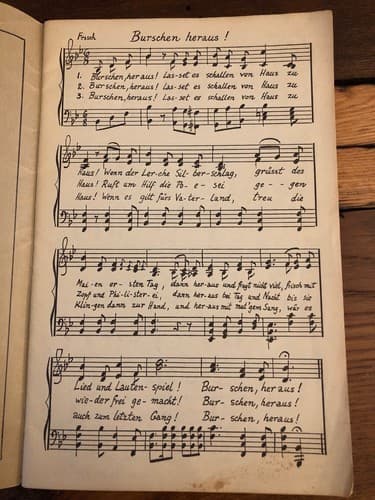 Burschen heraus!
Frisch
1. Burschen, heraus! Las-set es schallen von Haus zu
2. Burschen, heraus! Las-set es schallen von Haus zu
3. Burschen, heraus! Las-set es schallen von Haus zu
Haus! Wenn der Ler-che Sil-ber-schlag, grüsst des
Haus! Ruft um Hilf die Po-e-sei ge-gen
Haus! Wenn es gilt fürs Va-ter-land, treu die
Mai-en er-sten Tag, dann her-aus und fragt nicht viel, frisch mit
Zopf und Phi-li-ster-ei, dann her-aus bei Tag und Nacht bis sie
Klin-gen dann zur Hand, und her-aus mit mut'gem Sang, wär es
Lied und Lauten-spiel! Bur-schen, her aus!
wie-der frei ge-macht! Bur-schen, heraus!
auch zum letzten Gang! Bur-schen, heraus!